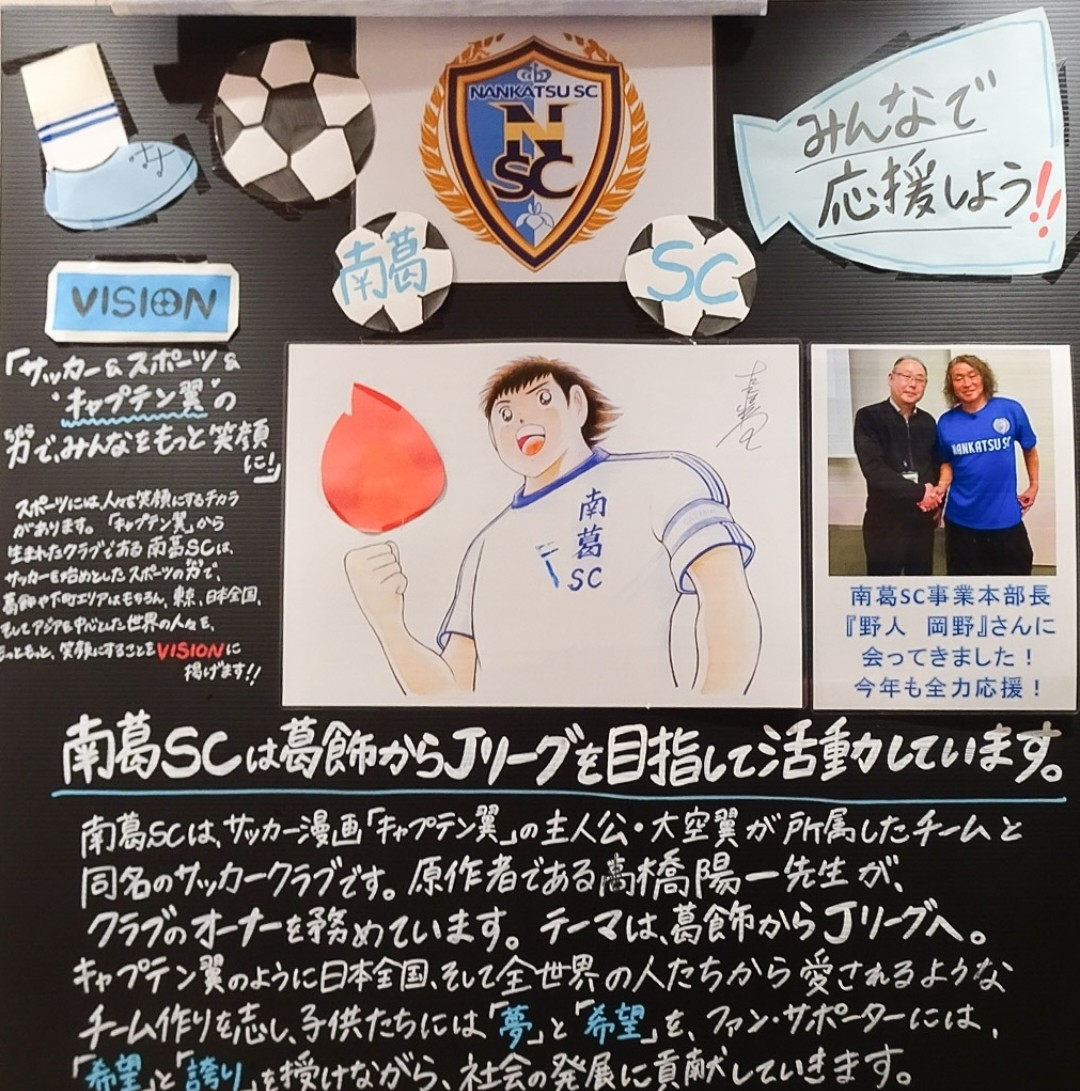 NANKATSU SC
N
SC
みんなで
応援しよう!!
南葛
SC
VISION
「サッカー&スポーツ&
"キャプテン翼"の
力で、みんなをもっと笑顔
に!」
スポーツには、人々を笑顔にするチカラ
があります。「キャプテン翼」から
生まれたクラブである南葛SCは、
サッカーを始めとしたスポーツの力で、
葛飾や下町エリアはもちろん、東京、日本全国、
そしてアジアを中心とした世界の人々を、
もっともっと、笑顔にすることをVISIONに
掲げます!!
南
葛
SC
NANKATSU SC
南葛SC事業本部長
『野人 岡野』さんに
会ってきました!
今年も全力応援!
南葛SCは葛飾からJリーグを目指して活動しています。
南葛SCは、サッカー漫画「キャプテン翼」の主人公・大空翼が所属したチームと
同名のサッカークラブです。原作者である高橋陽一先生が、
クラブのオーナーを務めています。テーマは、葛飾からJリーグへ。
キャプテン翼のように日本全国、そして全世界の人たちから愛されるような
チーム作りを志し、子供たちには「夢」と「希望」を、ファン・サポーターには、
「希望」と「誇り」を授けながら、社会の発展に貢献していきます。